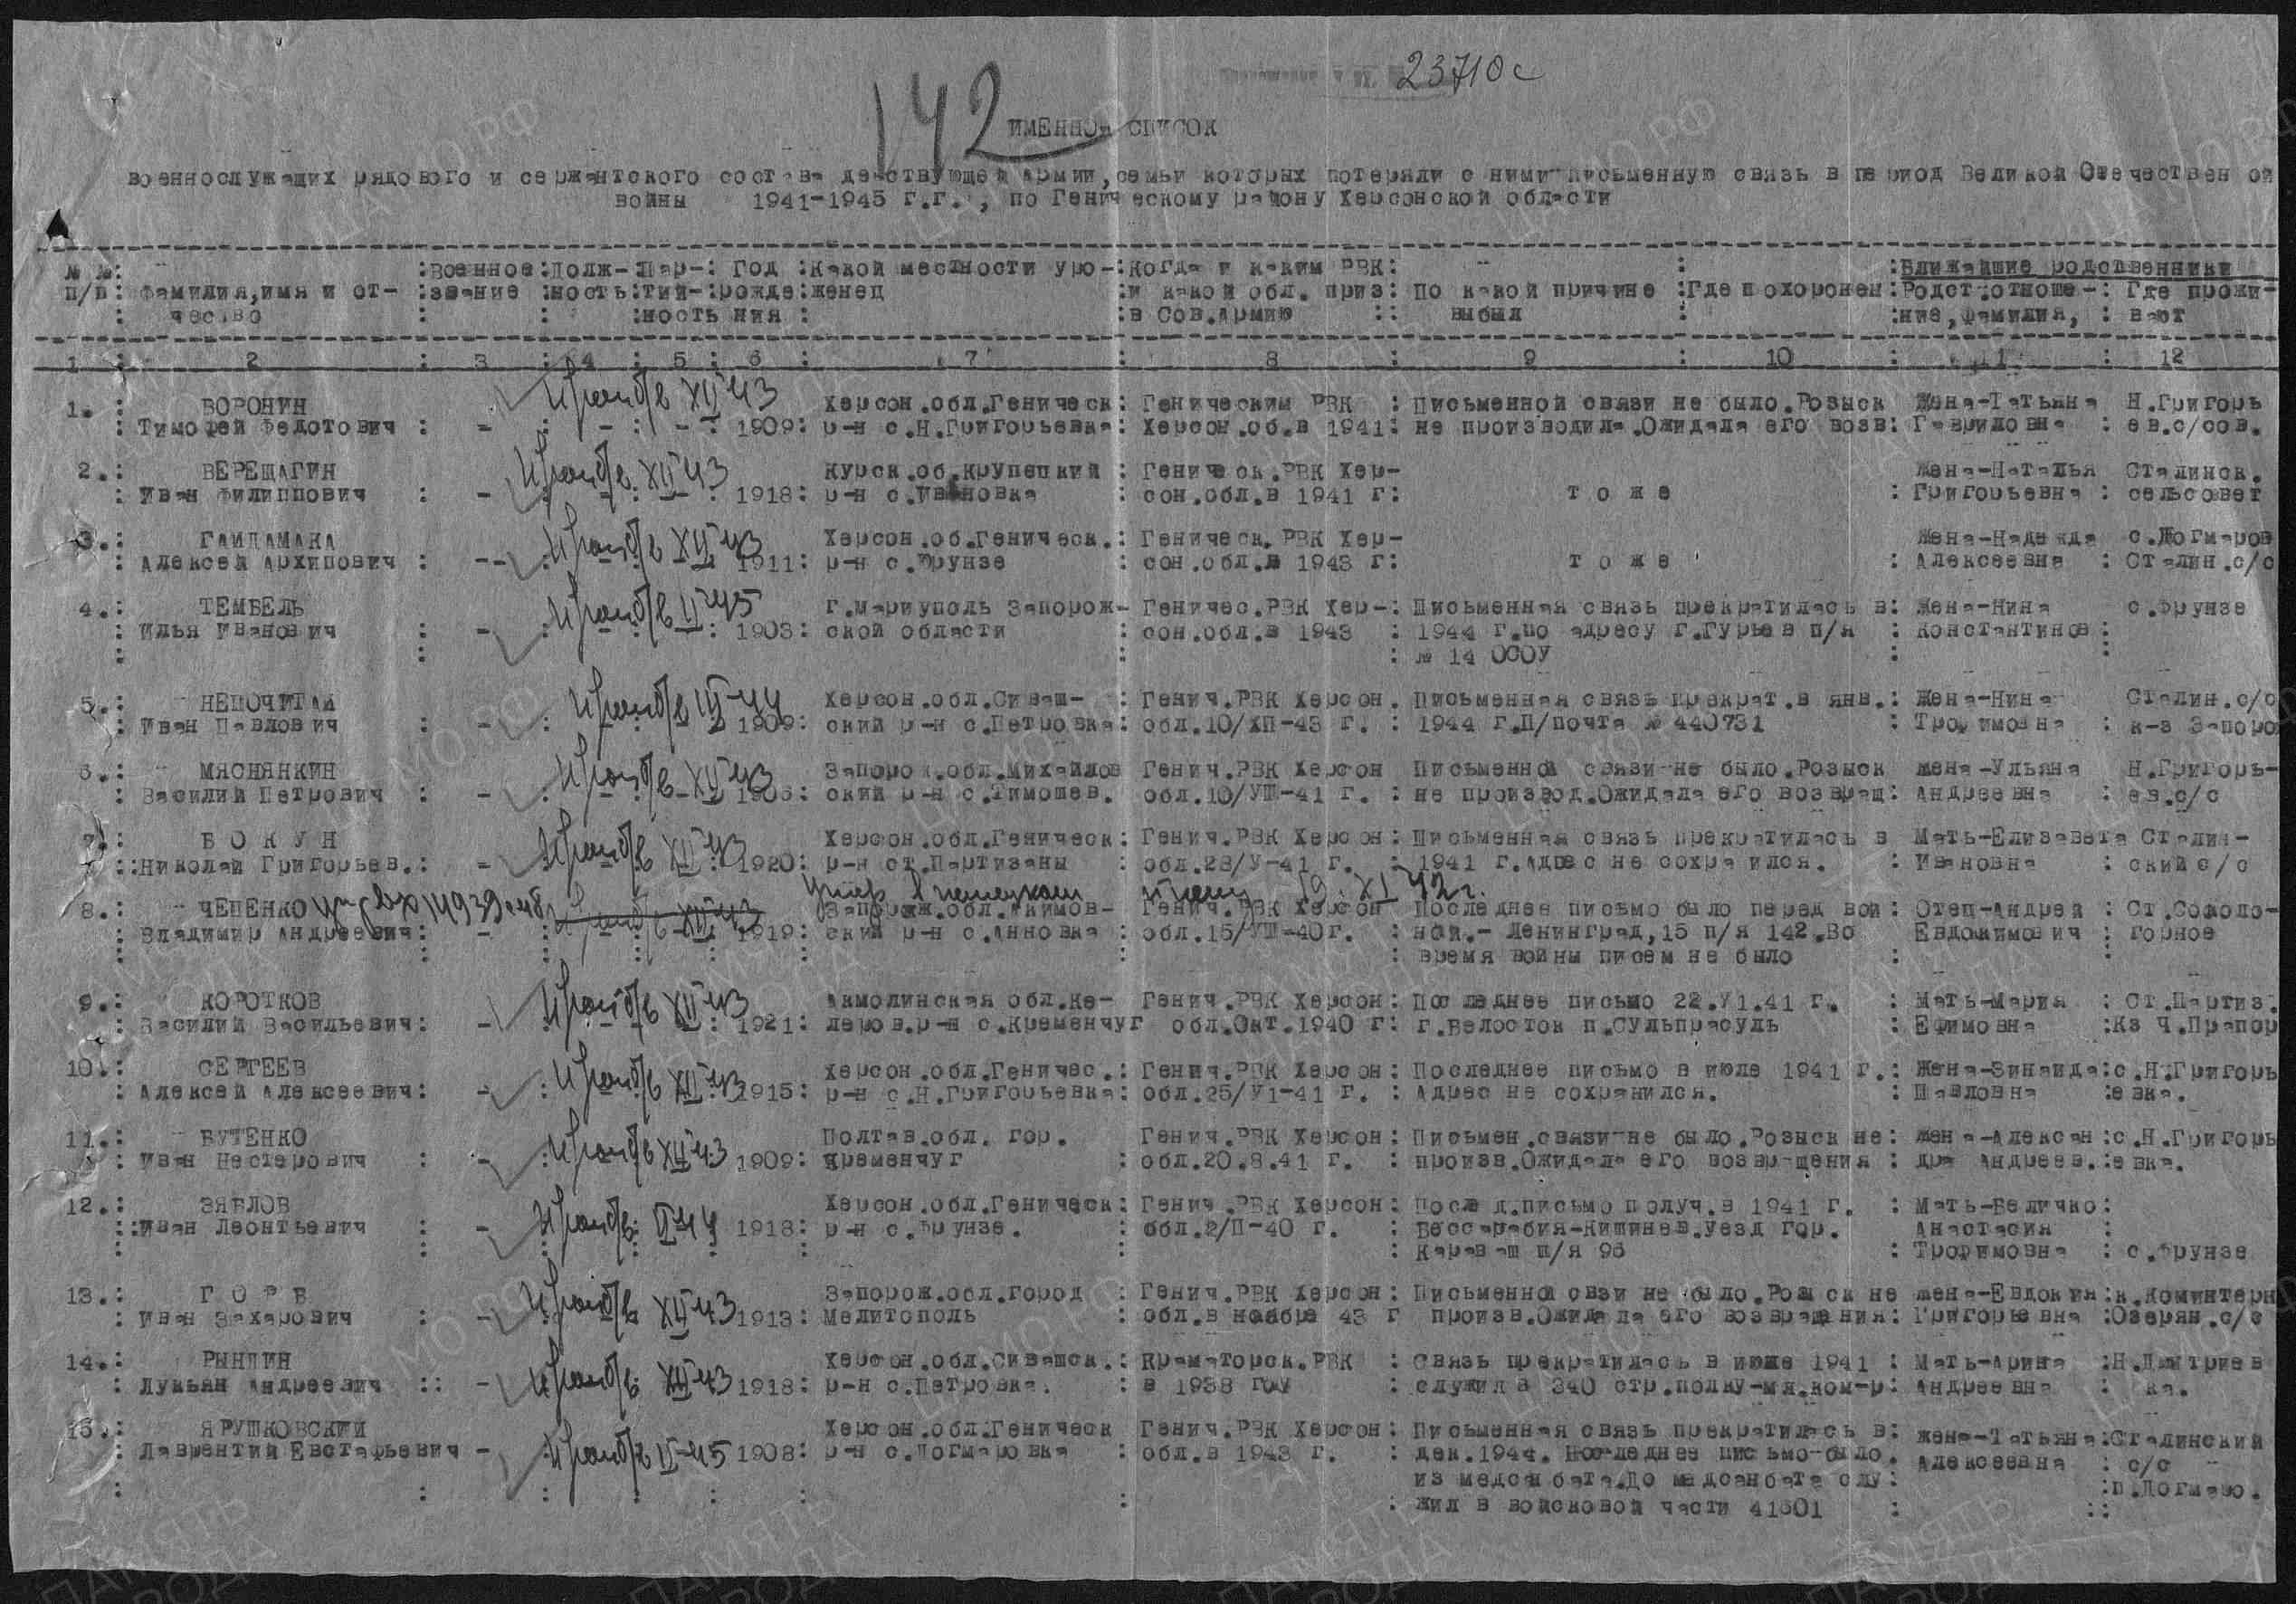 23710с
142
ИМЕННОЙ СПИСОК
военнослужащих рядового и сержантского состава действующей армии, семьи которых потеряли с ними письменную связь в период Великой Отечествен ой
войны 1941-1945 г.г., по Геническому району Херсонской области
№ №: :Военное:Долж-:Пар-: Год :Какой местности уро-:Когда и каким РВК: : :Ближайшие родственники
п/п: Фамилия,имя и от- :звание :ность:тий-:рожде:женец :и какой обл. приз: По какой причине :Где похоронен:Родст.отноше-: Где прожи-
: чество : : :ность ния : :в Сов.Армию :: выбыл : :ние,фамилия, : вают
1 : 2 : 3 : 4 : 5 : 6 : 7 : 8 : 9 : 10 : 11 : 12
Проп б/в XII 43
1.: ВОРОНИН Херсон.обл.Геническ: Геническим РВК : Письменной связи не было.Розыск Жена-Татьяна Н.Григорь
: Тимофей Федотович : - : - : - - 1909: р-н с.Н.Григорьевка: Херсон.об.в 1941: не производила.Ожидала его возв: Гавриловна : ев.с/сов.
Проп б/в XII 43
2.: ВЕРЕЩАГИН Курск.об.Крупецкий : Геническ.РВК Хер- Жена-Наталья Сталинск.
: Иван Филиппович : - 1918: р-н с.Ивановка : сон.обл.в 1941 г: т о ж е : Григорьевна : сельсовет
Проп б/в XII 43
3.: ГАЙДАМАКА Херсон.об.Геническ.: Геническ. РВК Хер- Жена-Надежда с.Догмаров
: Алексей Архипович : -- 1911: р-н с.Фрунзе : сон.обл.в 1943 г: т о ж е : Алексеевна : Сталин.с/с
Проп б/в II 45
4.: ТЕМБЕЛЬ г.Мариуполь Запорож- Геничес.РВК Хер-: Письменная связь прекратилась в: Жена-Нина с.Фрунзе
: Илья Иванович : - 1903: ской области : сон.обл.в 1943 : 1944 г.по адресу г.Гурьев п/я : Константинов:
: : : : № 14 ОСОУ : :
Проп б/в III-44
5.: НЕПОЧИТАЙ Херсон.обл.Сиваш- : Генич.РВК Херсон. Письменная связь прекрат.в янв.: Жена-Нина Сталин.с/с
: Иван Павлович : - : 1909: ский р-н с.Петровка: обл.10/ХП-43 г. : 1944 г.П/почта № 440731 : Трофимовна : к-з Запоро
Проп б/в XII 43
6.: МЯСНЯНКИН Запорож.обл.Михайлов Генич.РВК Херсон Письменной связи не было.Розыск Жена-Ульяна Н.Григорь-
: Василий Петрович : - 1906: ский р-н с.Тимошев. обл.10/УШ-41 г. : не производ.Ожидала его возвращ: Андреевна : ев.с/с
Проп б/в XII 43
7.: Б О К У Н Херсон.обл.Геническ: Генич.РВК Херсон: Письменная связь прекратилась в Мать-Елизавета Сталин-
::Николай Григорьев.: - 1920: р-н ст.Партизаны : обл.28/У-41 г. : 1941 г.Адрес не сохра ился. : Ивановна : ский с/с
умер в немецком плену 19.XI 42 г.
8.: ЧЕПЕНКО Запорож.обл.Акимов- Генич.РВК Херсон Последнее письмо было перед вой: Отец-Андрей : Ст.Соколо-
: Владимир Андреевич: - 1919: ский р-н с.Анновка : обл.15/УШ-40г. : ной.- Ленинград,15 п/я 142.Во Евдокимович : горное
: : : : время войны писем не было : :
Проп б/в XII 43
9.: КОРОТКОВ Акмолинская обл.Ке- Генич.РВК Херсон: Последнее письмо 22.У1.41 г. : Мать-Мария : Ст.Партиз.
: Василий Васильевич: - 1921: леров.р-н с.Кременчуг обл.Окт.1940 г: г.Белосток п.Сульпрасуль : Ефимовна :Кз Ч.Прапор
Проп б/в XII 43
10.: СЕРГЕЕВ Херсон.обл.Геничес.: Генич.РВК Херсон: Последнее письмо в июле 1941 г.: Жена-Зинаида:с.Н.Григорь
: Алексей Алексеевич: - 1915: р-н с.Н.Григорьевка: обл.25/У1-41 г. : Адрес не сохранился. : Павловна :евка.
Проп б/в XII 43
11.: БУТЕНКО Полтав.обл. гор. Генич.РВК Херсон: Письмен.связи не было.Розыск не: Жена-Алексан:с.Н.Григорь
: Иван Нестерович : - 1909: Кременчуг : обл.20.8.41 г. : произв.Ожидала его возвращения : дра Андреев.:евка.
Проп б/в VI 44
12.: ЗЯБЛОВ Херсон.обл.Геническ: Генич.РВК Херсон: Послед.письмо получ.в 1941 г. : Мать-Величко:
::Иван Леонтьевич : - 1918: р-н с.Фрунзе. : обл.2/П-40 г. : Бессарабия-Кишинев.уезд гор. Анастасия :
: : : : Караваш п/я 96 : Трофимовна : с.Фрунзе
Проп б/в XII 43
13.: Г О Р Б Запорож.обл.город : Генич.РВК Херсон: Письменной связи не было.Розыск не Жена-Евдокия:к.Коминтерн
: Иван Захарович : - 1913: Мелитополь : обл.в ноябре 43 г произв.Ожидала его возвращения: Григорьевна :Озерян.с/с
Проп б/в XII 43
14.: РЫНДИН Херсон.обл.Сивашск.: Краматорск.РВК : Связь прекратилась в июне 1941 : Мать-Арина :Н.Дмитриев
: Лукьян Андреевич :: - 1918: р-н с.Петровка. : в 1938 году : служил в 340 стр.полку-мл.ком-р: Андреевна : ка.
Проп б/в II-45
15.: ЯРУШКОВСКИЙ Херсон.обл.Геническ Генич.РВК Херсон: Письменная связь прекратилась в: Жена-Татьяна:Сталинский
: Лаврентий Евстафьевич - 1908: р-н с.Догмаровка : обл.в 1943 г. : дек.1944. Последнее письмо было. Алексеевна : с/с
из медсанбата.До медсанбата слу: :п.Догмаро.
: : : : жил в войсковой части 41601 : ::